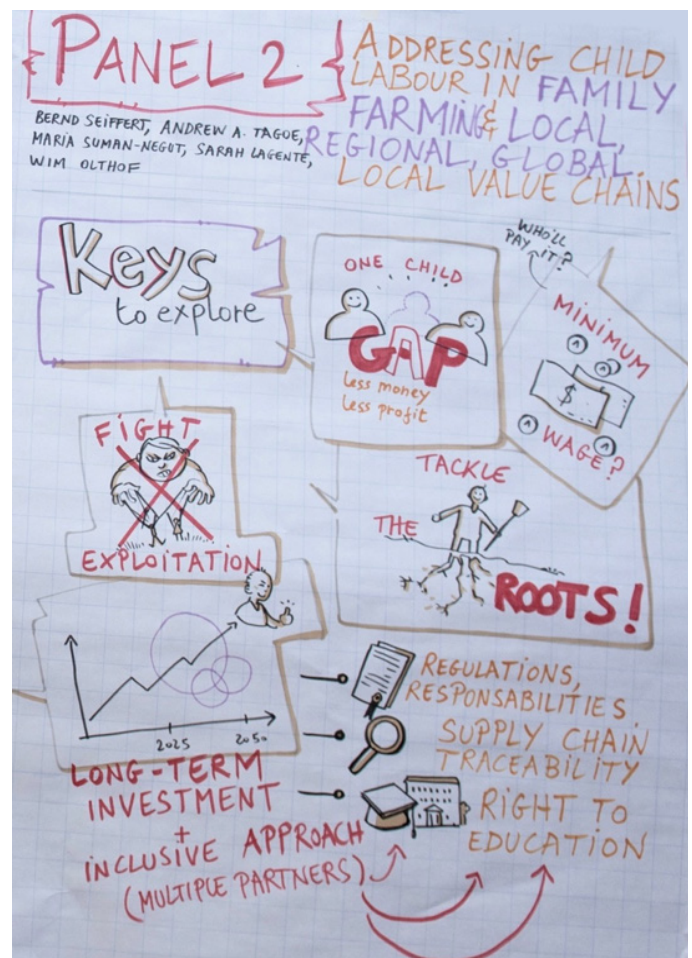 PANEL 2
ADDRESSING CHILD
LABOUR IN FAMILY
FARMING & LOCAL,
REGIONAL, GLOBAL
LOCAL VALUE CHAINS
BERND SEIFFERT, ANDREW A. TAGOE,
MARIA SUMAN-NEGUT, SARAH LAGENTE,
WIM OLTHOF
Keys
to explore
ONE CHILD
GAP
less money
less profit
WHO'LL
PAY IT?
MINIMUM
$
WAGE?
FIGHT
EXPLOITATION
TACKLE
THE
ROOTS!
2025 2050
LONG-TERM
INVESTMENT
+
INCLUSIVE APPROACH
(MULTIPLE PARTNERS)
REGULATIONS,
RESPONSABILITIES
SUPPLY CHAIN
TRACEABILITY
RIGHT TO
EDUCATION